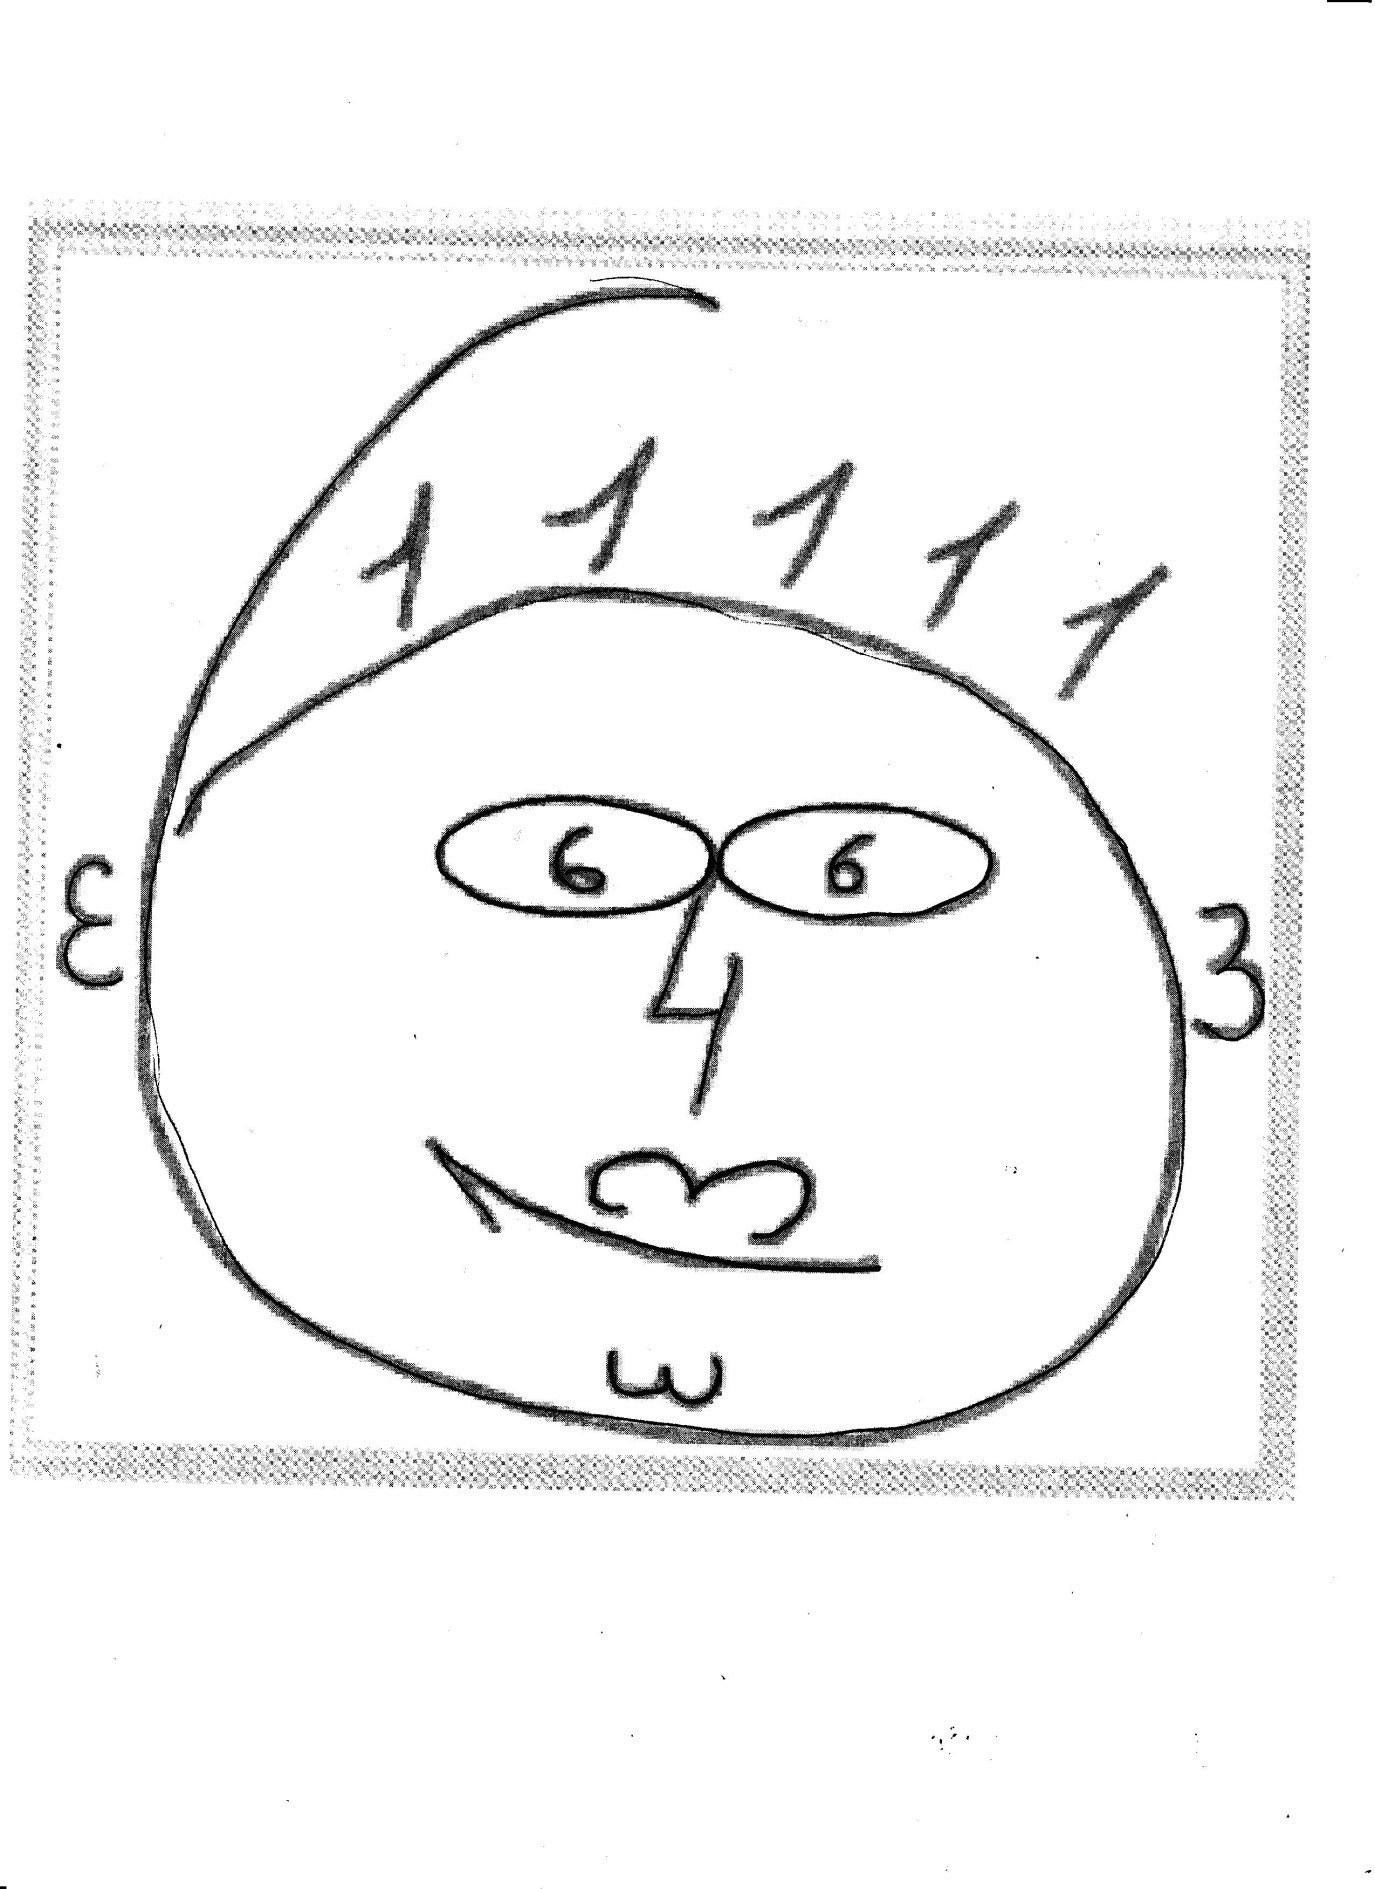 1 1 1 1 1
6 6
3 3
4
3
1
3